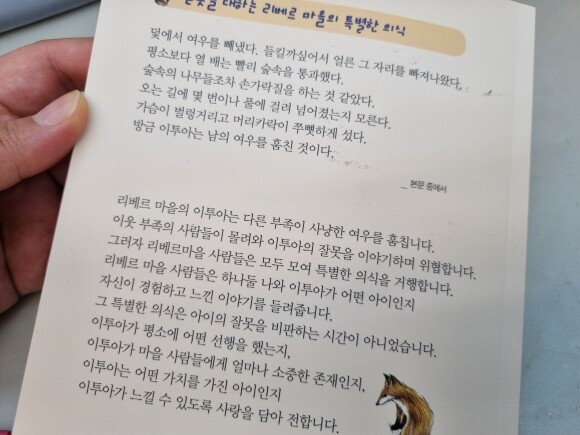 잘못을 대하는 리베르 마을의 특별한 의식
덫에서 여우를 빼냈다. 들킬까싶어서 얼른 그 자리를 빠져나왔다.
평소보다 열 배는 빨리 숲속을 통과했다.
숲속의 나무들조차 손가락질을 하는 것 같았다.
오는 길에 몇 번이나 풀에 걸려 넘어졌는지 모른다.
가슴이 벌렁거리고 머리카락이 쭈뼛하게 섰다.
방금 이투아는 남의 여우를 훔친 것이다.
_ 본문 중에서
리베르 마을의 이투아는 다른 부족이 사냥한 여우를 훔칩니다.
이웃 부족의 사람들이 몰려와 이투아의 잘못을 이야기하며 위협합니다.
그러자 리베르마을 사람들은 모두 모여 특별한 의식을 거행합니다.
리베르 마을 사람들은 하나둘 나와 이투아가 어떤 아이인지
자신이 경험하고 느낀 이야기를 들려줍니다.
그 특별한 의식은 아이의 잘못을 비판하는 시간이 아니었습니다.
이투아가 평소에 어떤 선행을 했는지,
이투아가 마을 사람들에게 얼마나 소중한 존재인지,
이투아는 어떤 가치를 가진 아이인지
이투아가 느낄 수 있도록 사랑을 담아 전합니다.